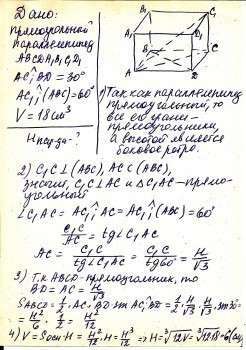 Дано:
прямоугольный
параллелепипед
ABCDA₁B₁C₁D₁
AC^BD = 30°
AC₁^(ABC) = 60°
V = 18 см³
H пар-да - ?
B₁
C₁
A₁
D₁
B
C
A
D
1) Так как параллелепипед
прямоугольный, то
все его грани —
прямоугольники,
а высотой является
боковое ребро.
2) C₁C⊥(ABC), AC⊂(ABC),
значит, C₁C⊥AC и △C₁AC — прямо-
угольный
∠C₁AC = AC₁^AC = AC₁^(ABC) = 60°
C₁C/AC = tg∠C₁AC
AC = C₁C/tg∠C₁AC = C₁C/tg60° = H/√3
3) Т.к ABCD - прямоугольник, то
BD = AC = H/√3
S ABCD = 1/2 · AC · BD sin AC^BD = 1/2 · H/√3 · H/√3 · sin 30° =
= H²/6 · 1/2 = H²/12
4) V = S осн · H = H²/12 · H = H³/12 ⇒ H = ³√12V = ³√12·18 = 6 (см)